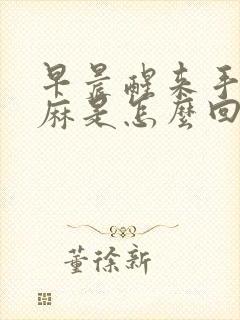 早晨醒来手
麻是怎麼回
董徐新